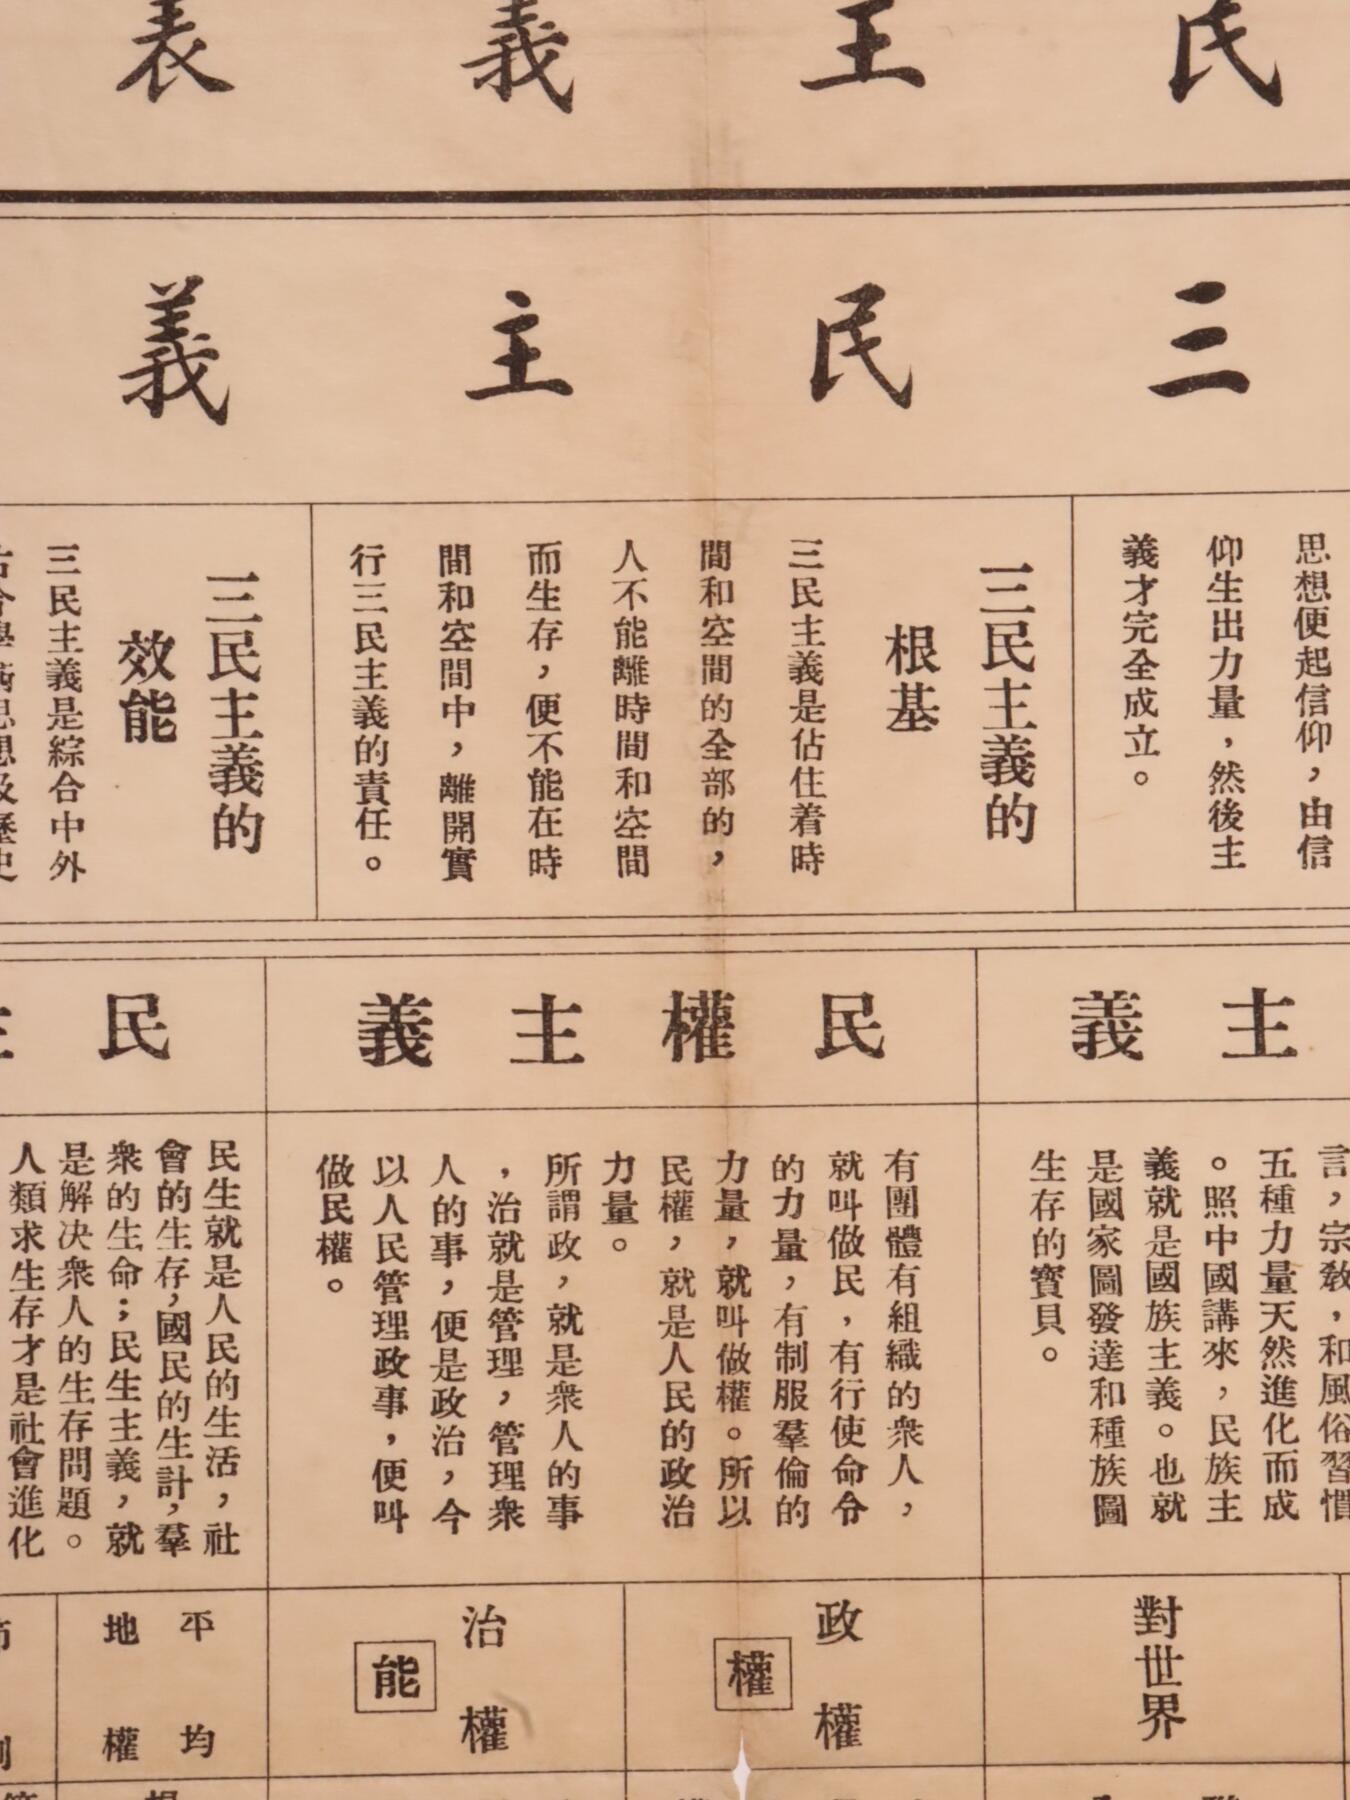 民主義表
三民主義
思想便起信仰，由信
仰生出力量，然後主
義才完全成立。
三民主義的
根基
三民主義是佔住着時
間和空間的全部的，
人不能離時間和空間
而生存，便不能在時
間和空間中，離開實
行三民主義的責任。
三民主義的
效能
三民主義是綜合中外
主義
言，宗敎，和風俗習慣
五種力量天然進化而成
。照中國講來，民族主
義就是國族主義。也就
是國家圖發達和種族圖
生存的寶貝。
對世界
民權主義
有團體有組織的衆人，
就叫做民，有行使命令
的力量，有制服羣倫的
力量，就叫做權。所以
民權，就是人民的政治
力量。
所謂政，就是衆人的事
，治就是管理，管理衆
人的事，便是政治，今
以人民管理政事，便叫
做民權。
政權
權
治權
能
民
民生就是人民的生活，社
會的生存，國民的生計，羣
衆的生命；民生主義，就
是解決衆人的生存問題。
人類求生存才是社會進化
平均
地權